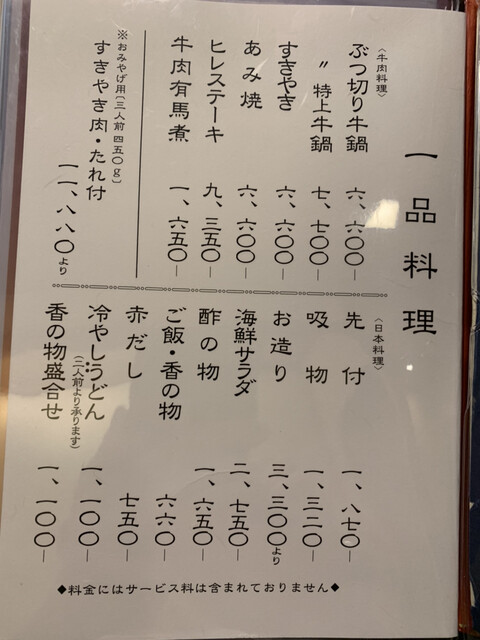 一品料理
〈牛肉料理〉
ぶつ切り牛鍋 六、六〇〇―
〃 特上牛鍋 七、七〇〇―
すきやき 六、六〇〇―
あみ焼 六、六〇〇―
ヒレステーキ 九、三五〇―
牛肉有馬煮 一、六五〇―
※おみやげ用〔三人前 四五〇g〕
すきやき肉・たれ付 一一、八八〇より
〈日本料理〉
先付 一、八七〇―
吸物 一、三二〇―
お造り 三、三〇〇より
海鮮サラダ 二、七五〇―
酢の物 一、六五〇―
ご飯・香の物 六六〇―
赤だし 七五〇―
冷やしうどん 一、一〇〇―
(二人前より承ります)
香の物盛合せ 一、一〇〇―
◆料金にはサービス料は含まれておりません◆